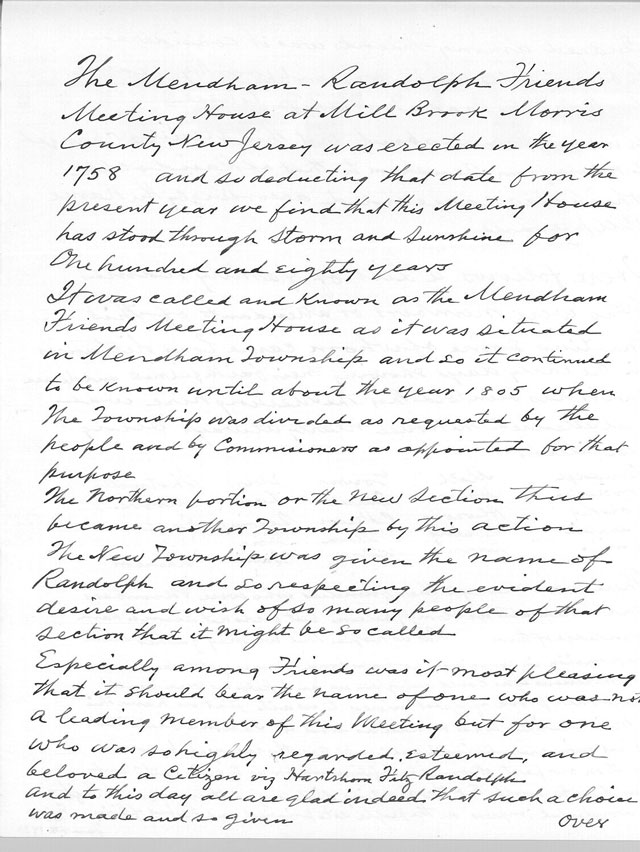 The Mendham - Randolph Friends
Meeting House at Mill Brook Morris
County New Jersey was erected in the year
1758 and so deducting that date from the
present year we find that this Meeting House
has stood through Storm and Sunshine for
One hundred and Eighty years
It was called and Known as the Mendham
Friends Meeting House as it was setuated
in Mendham Township and so it continued
to be Known until about the year 1805 when
The Township was divided as requested by the
people and by Commisioners as appointed for that
purpose
The Northern portion or the New Section thus
became another Township by this action
The New Township was given the name of
Randolph and so respecting the evident
desire and wish of so many people of that
section that it might be so called
Especially among Friends was it most pleasing
that it should bear the name of one who was not
a leading member of this Meeting but for one
who was so highly regarded, Esteemed, and
beloved a Citizen viz Hartshorn Fitz Randolph
and to this day all are glad indeed that such a choice
was made and so given
Over